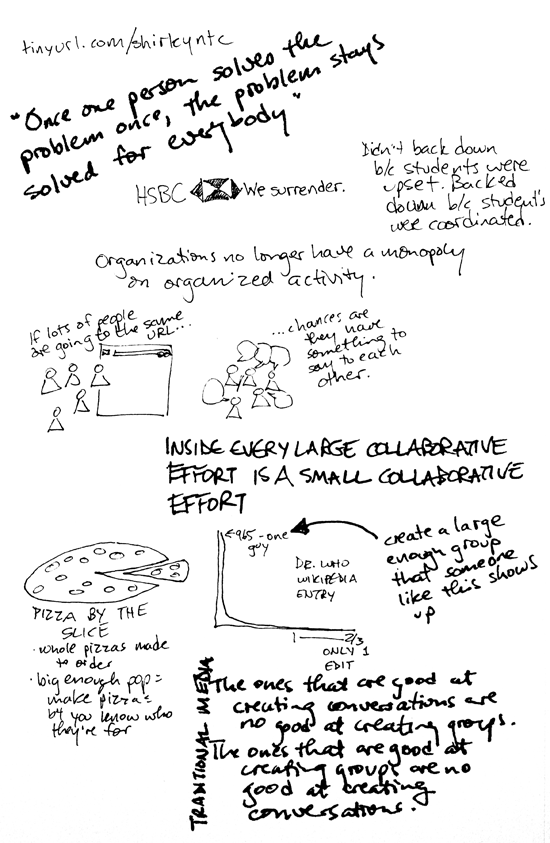 tinyurl.com/shirkyntc
"Once one person solves the
problem once, the problem stays
solved for everybody"
HSBC We surrender.
Didn't back down
b/c students were
upset. Backed
down b/c student's
were coordinated.
Organizations no longer have a monopoly
on organized activity.
If lots of people
are going to the same
URL...
...chances are
they have
something to
say to each
other.
INSIDE EVERY LARGE COLLABORATIVE
EFFORT IS A SMALL COLLABORATIVE
EFFORT
965 - one
guy
DR. WHO
WIKIPEDIA
ENTRY
1 2/3
ONLY 1
EDIT
create a large
enough group
that someone
like this shows
up
PIZZA BY THE
SLICE
· whole pizzas made
to order
· big enough pop =
make pizzas
b4 you know who
they're for
TRADITIONAL MEDIA
The ones that are good at
creating conversations are
no good at creating groups.
The ones that are good at
creating groups are no
good at creating
conversations.